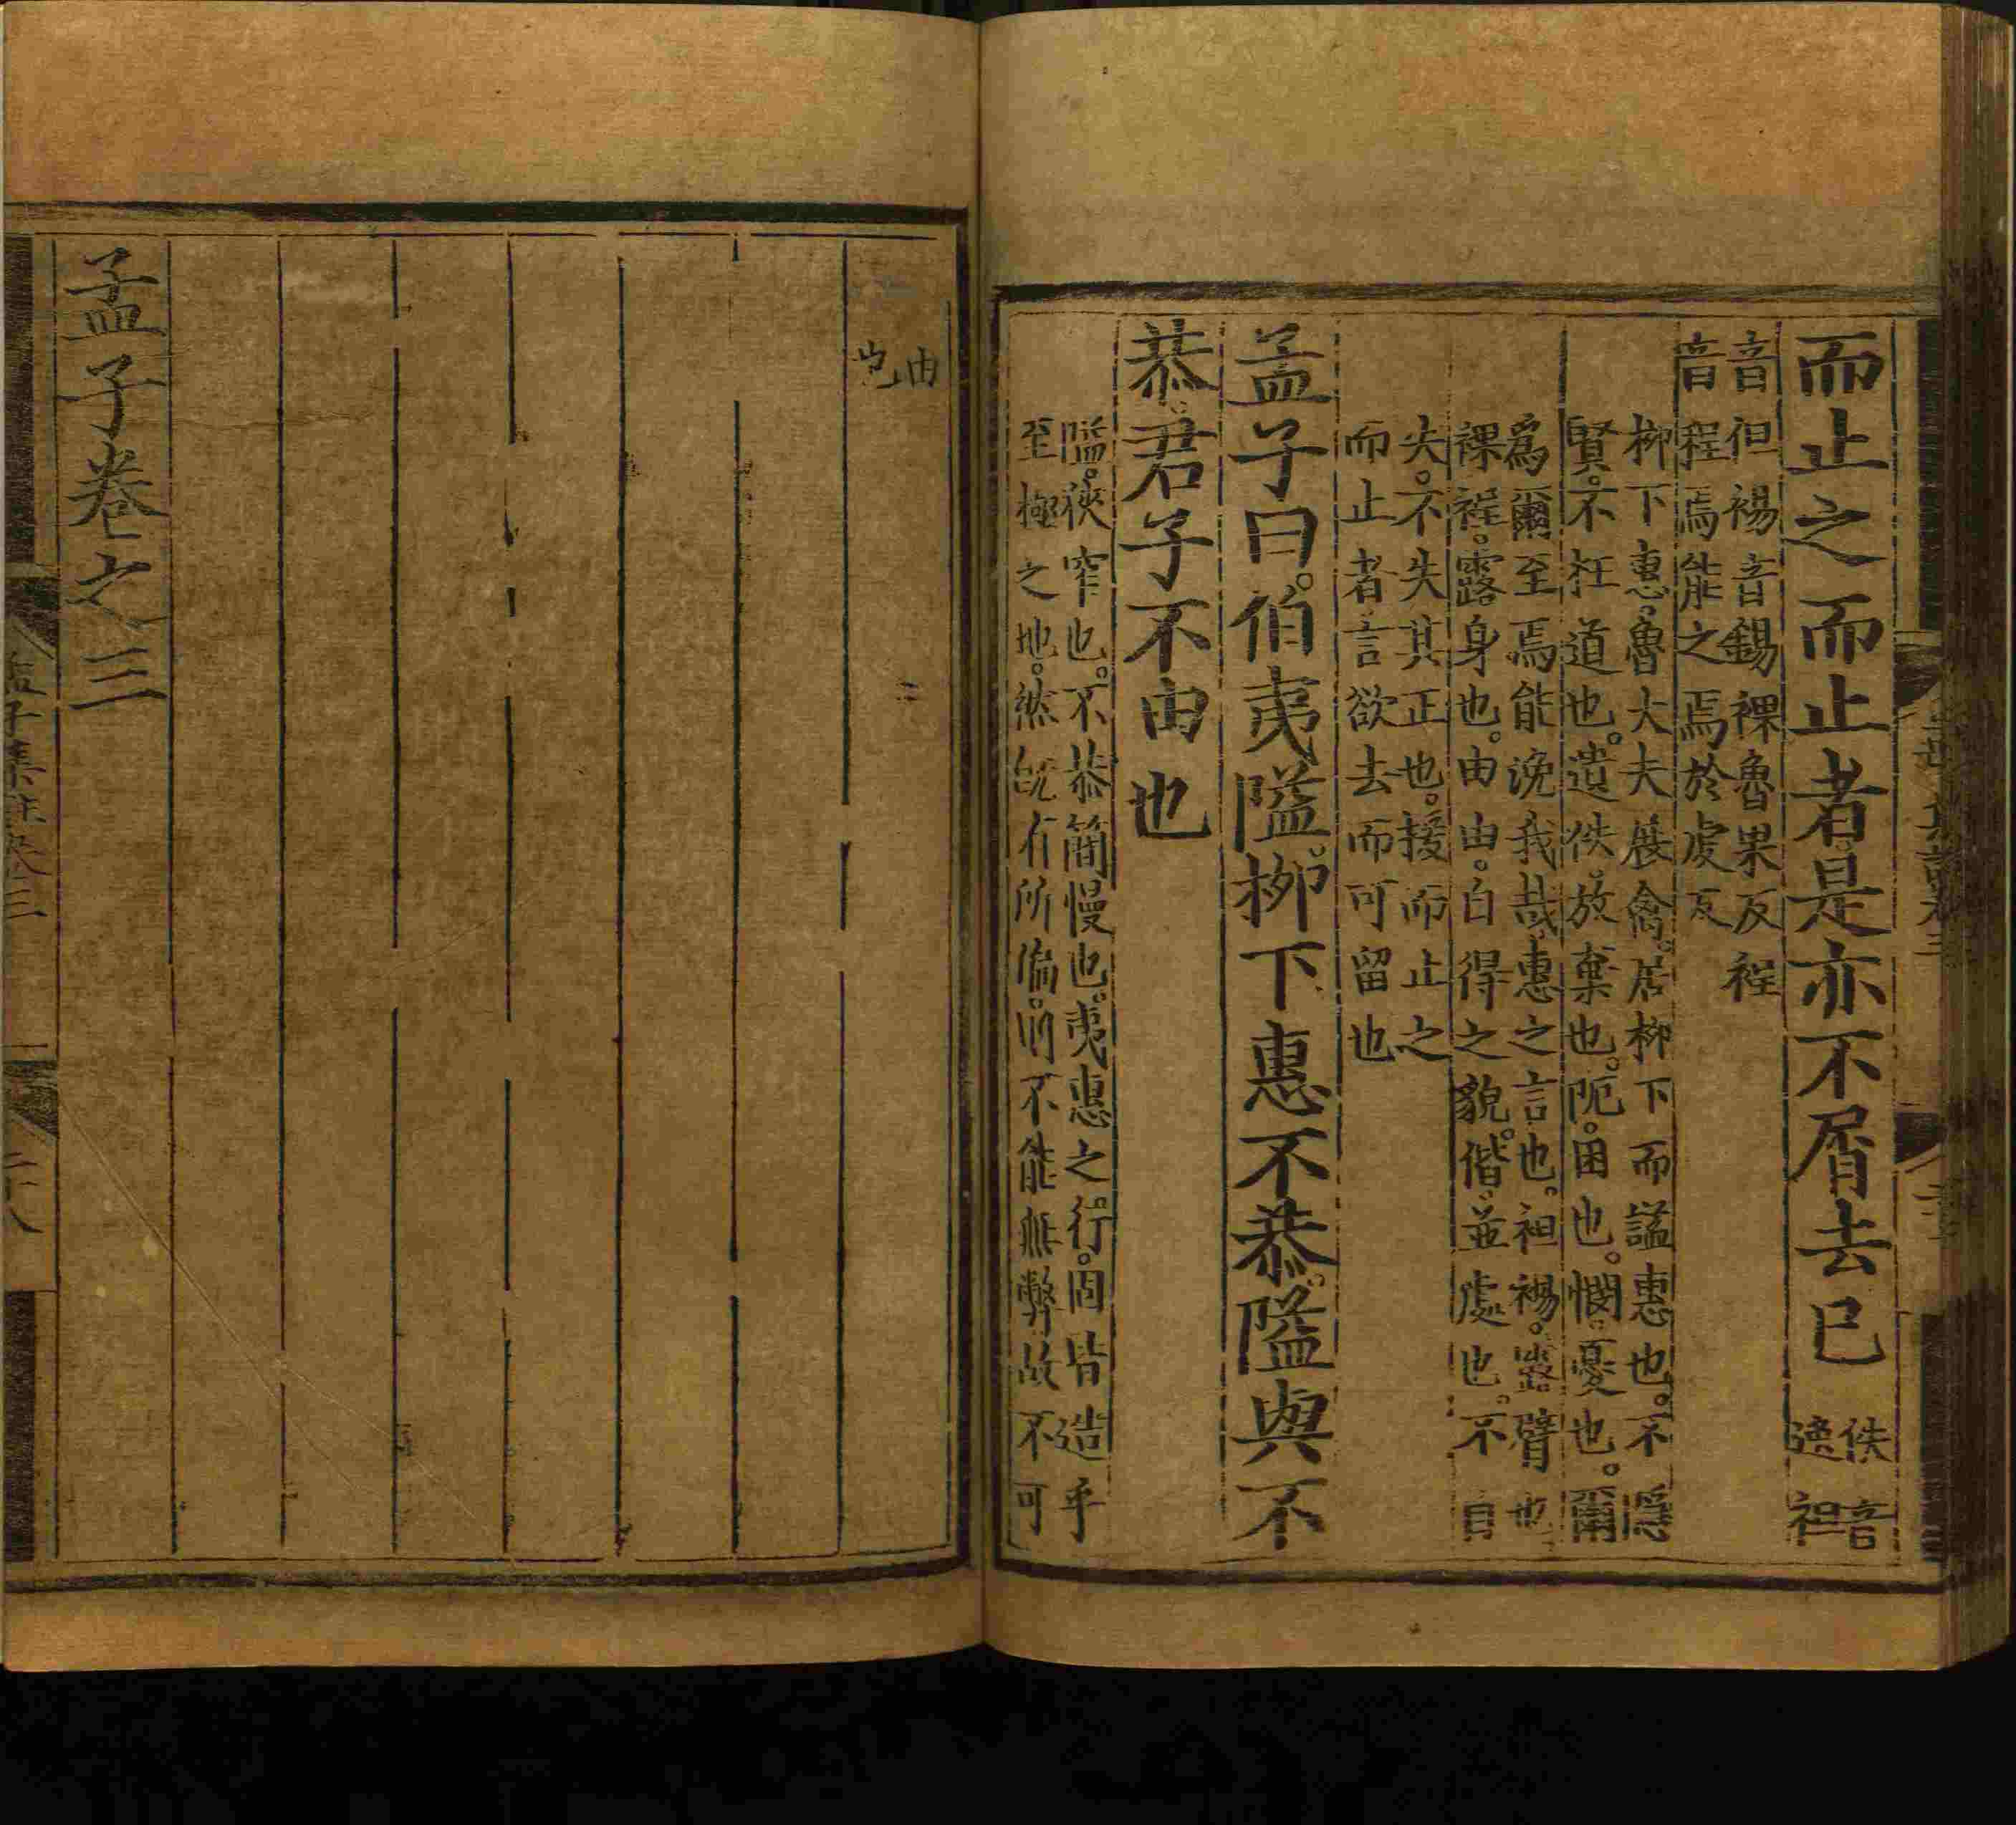 而止之而止者是亦不屑去已
佚音
遺袒
音但裼音錫裸魯果反裎
音程焉能之焉於虔反
柳下惠。魯大夫展禽。居柳下而謚惠也。不隱
賢。不枉道也。遺佚。放棄也。阨。困也。憫。憂也。爾
為爾至焉能浼我哉。惠之言也。袒裼。露臂也
裸裎。露身也。由由。自得之貌。偕。並處也。不自
失。不失其正也。援而止之
而止者。言欲去而可留也
孟子曰。伯夷隘。柳下惠不恭。隘與不
恭。君子不由也
隘。狹窄也。不恭簡慢也。夷惠之行。固皆造乎
至極之地。然旣有所偏。則不能無弊故不可
由
也
孟子卷之三
孟子集註卷三
二十八